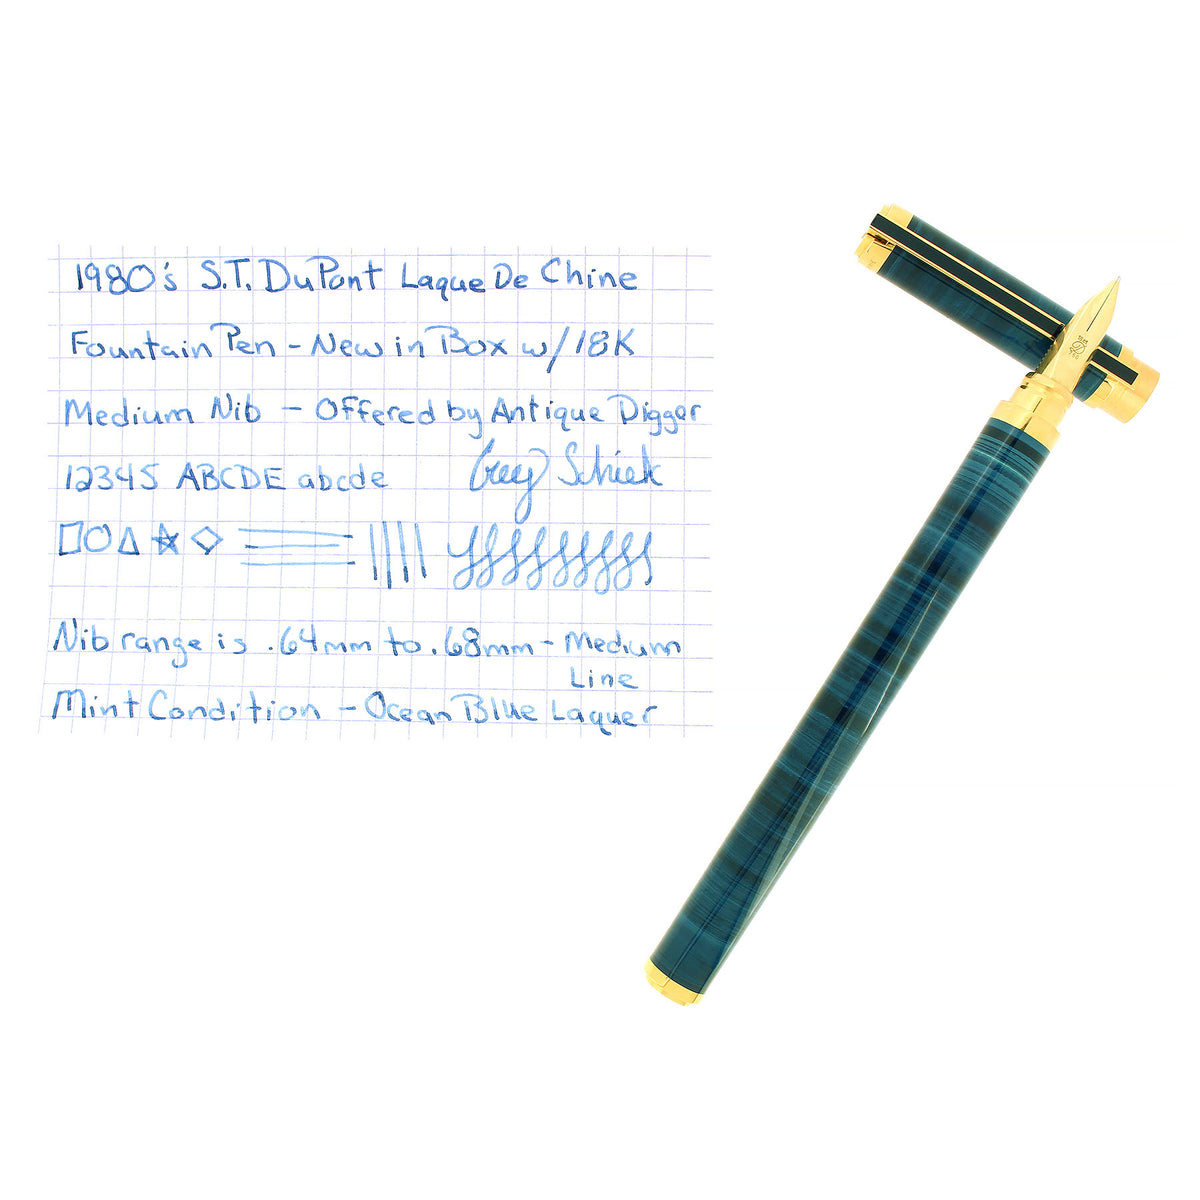 1980's S.T. DuPont Laque De Chine
Fountain Pen - New in Box w/ 18K
Medium Nib - Offered by Antique Digger
12345 ABCDE abcde
Nib range is .64mm to .68mm - Medium
Line
Mint Condition - Ocean Blue Laquer